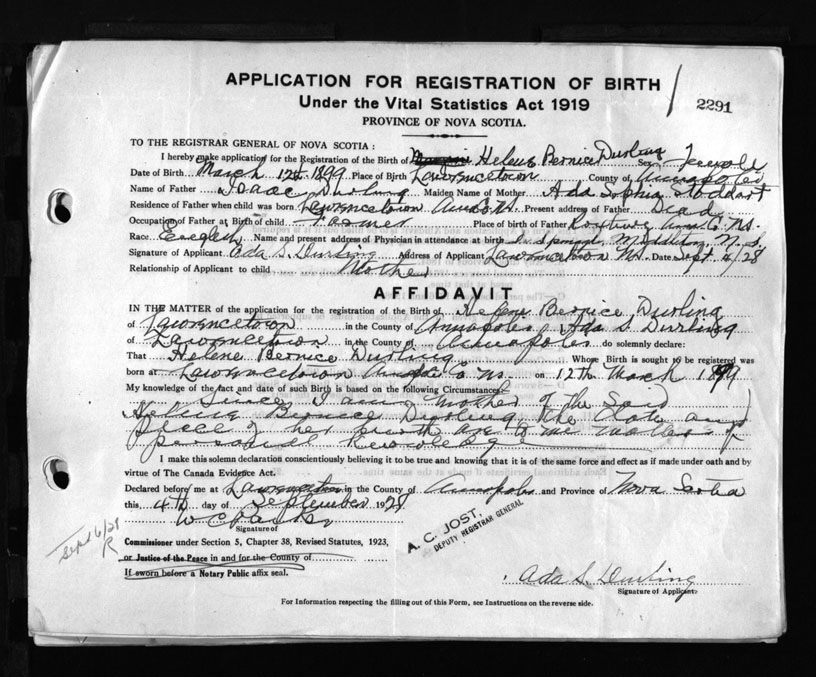 APPLICATION FOR REGISTRATION OF BIRTH
Under the Vital Statistics Act 1919
2291
PROVINCE OF NOVA SCOTIA.
TO THE REGISTRAR GENERAL OF NOVA SCOTIA:
I hereby make application for the Registration of the Birth of Helene Bernice Durling Sex Female
Date of Birth March 12th 1899 Place of Birth Lawrencetown County of Annapolis
Name of Father Isaac Durling Maiden Name of Mother Ada Sophia Stoddart
Residence of Father when child was born Lawrencetown Anna Co NS Present address of Father Dead
Occupation of Father at Birth of child Farmer Place of birth of Father Roxbury Anna Co. NS.
Race English Name and present address of Physician in attendance at birth Middleton, N.S.
Signature of Applicant Ada S. Durling Address of Applicant Lawrencetown NS. Date Sept. 4/28
Relationship of Applicant to child Mother
AFFIDAVIT
IN THE MATTER of the application for the registration of the Birth of Helene Bernice Durling
of Lawrencetown in the County of Annapolis Ada S. Durling
of Lawrencetown in the County of Annapolis do solemnly declare:
That Helene Bernice Durling Whose Birth is sought to be registered was
born at Lawrencetown Co NS. on 12th March 1899
My knowledge of the fact and date of such Birth is based on the following Circumstances
Since I am mother of the said
Helene Bernice Durling the date and
place of her birth are to me matters of
personal knowledge
I make this solemn declaration conscientiously believing it to be true and knowing that it is of the same force and effect as if made under oath and by
virtue of The Canada Evidence Act.
Declared before me at Lawrencetown in the County of Annapolis and Province of Nova Scotia
this 4th day of September 1928
Signature of
Commissioner under Section 5, Chapter 38, Revised Statutes, 1923,
or Justice of the Peace in and for the County of
If sworn before a Notary Public affix seal.
A. C. JOST,
DEPUTY REGISTRAR GENERAL
Sept 6/28
R
Ada S. Durling
Signature of Applicant
For Information respecting the filling out of this Form, see Instructions on the reverse side.